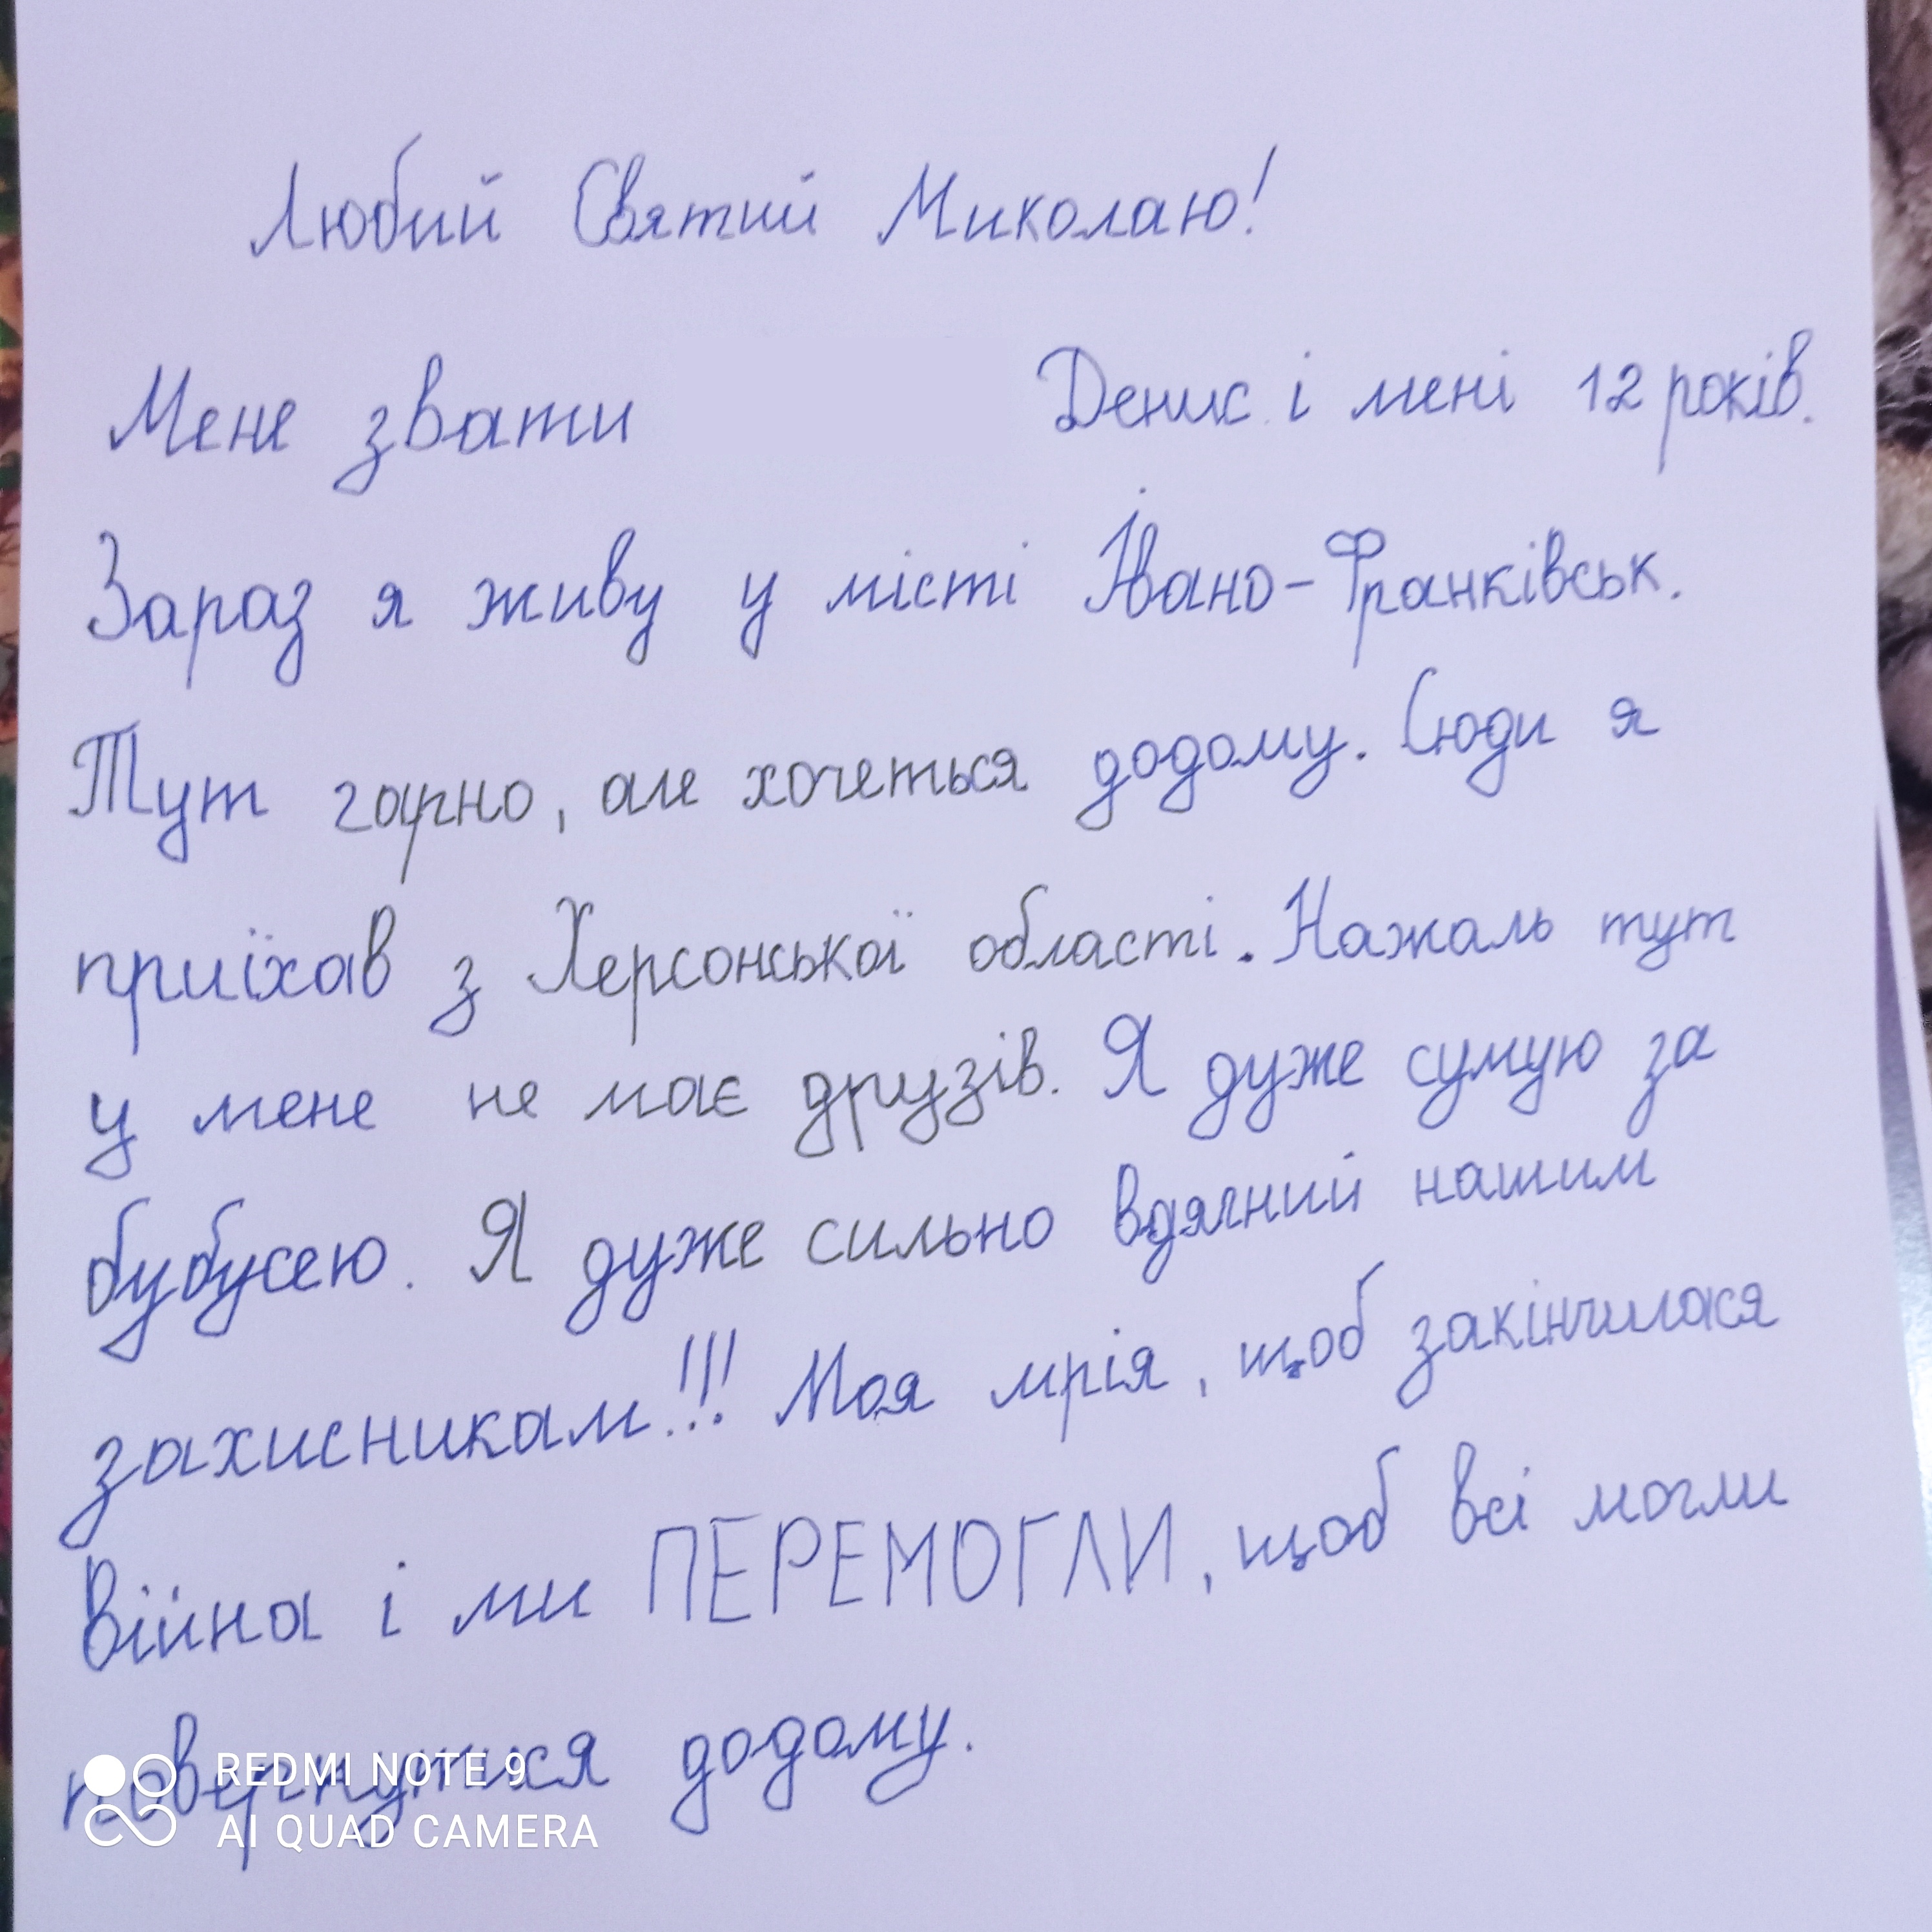 Любий Святий Миколаю!
Мене звати Денис і мені 12 років.
Зараз я живу у місті Івано-Франківськ.
Тут гарно, але хочеться додому. Сюди я
приїхав з Херсонської області. Нажаль тут
у мене не має друзів. Я дуже сумую за
бубусею. Я дуже сильно вдячний нашим
захисникам!!! Моя мрія, щоб закінчилася
війна і ми ПЕРЕМОГЛИ, щоб всі могли
повернутися додому.
REDMI NOTE 9
AI QUAD CAMERA